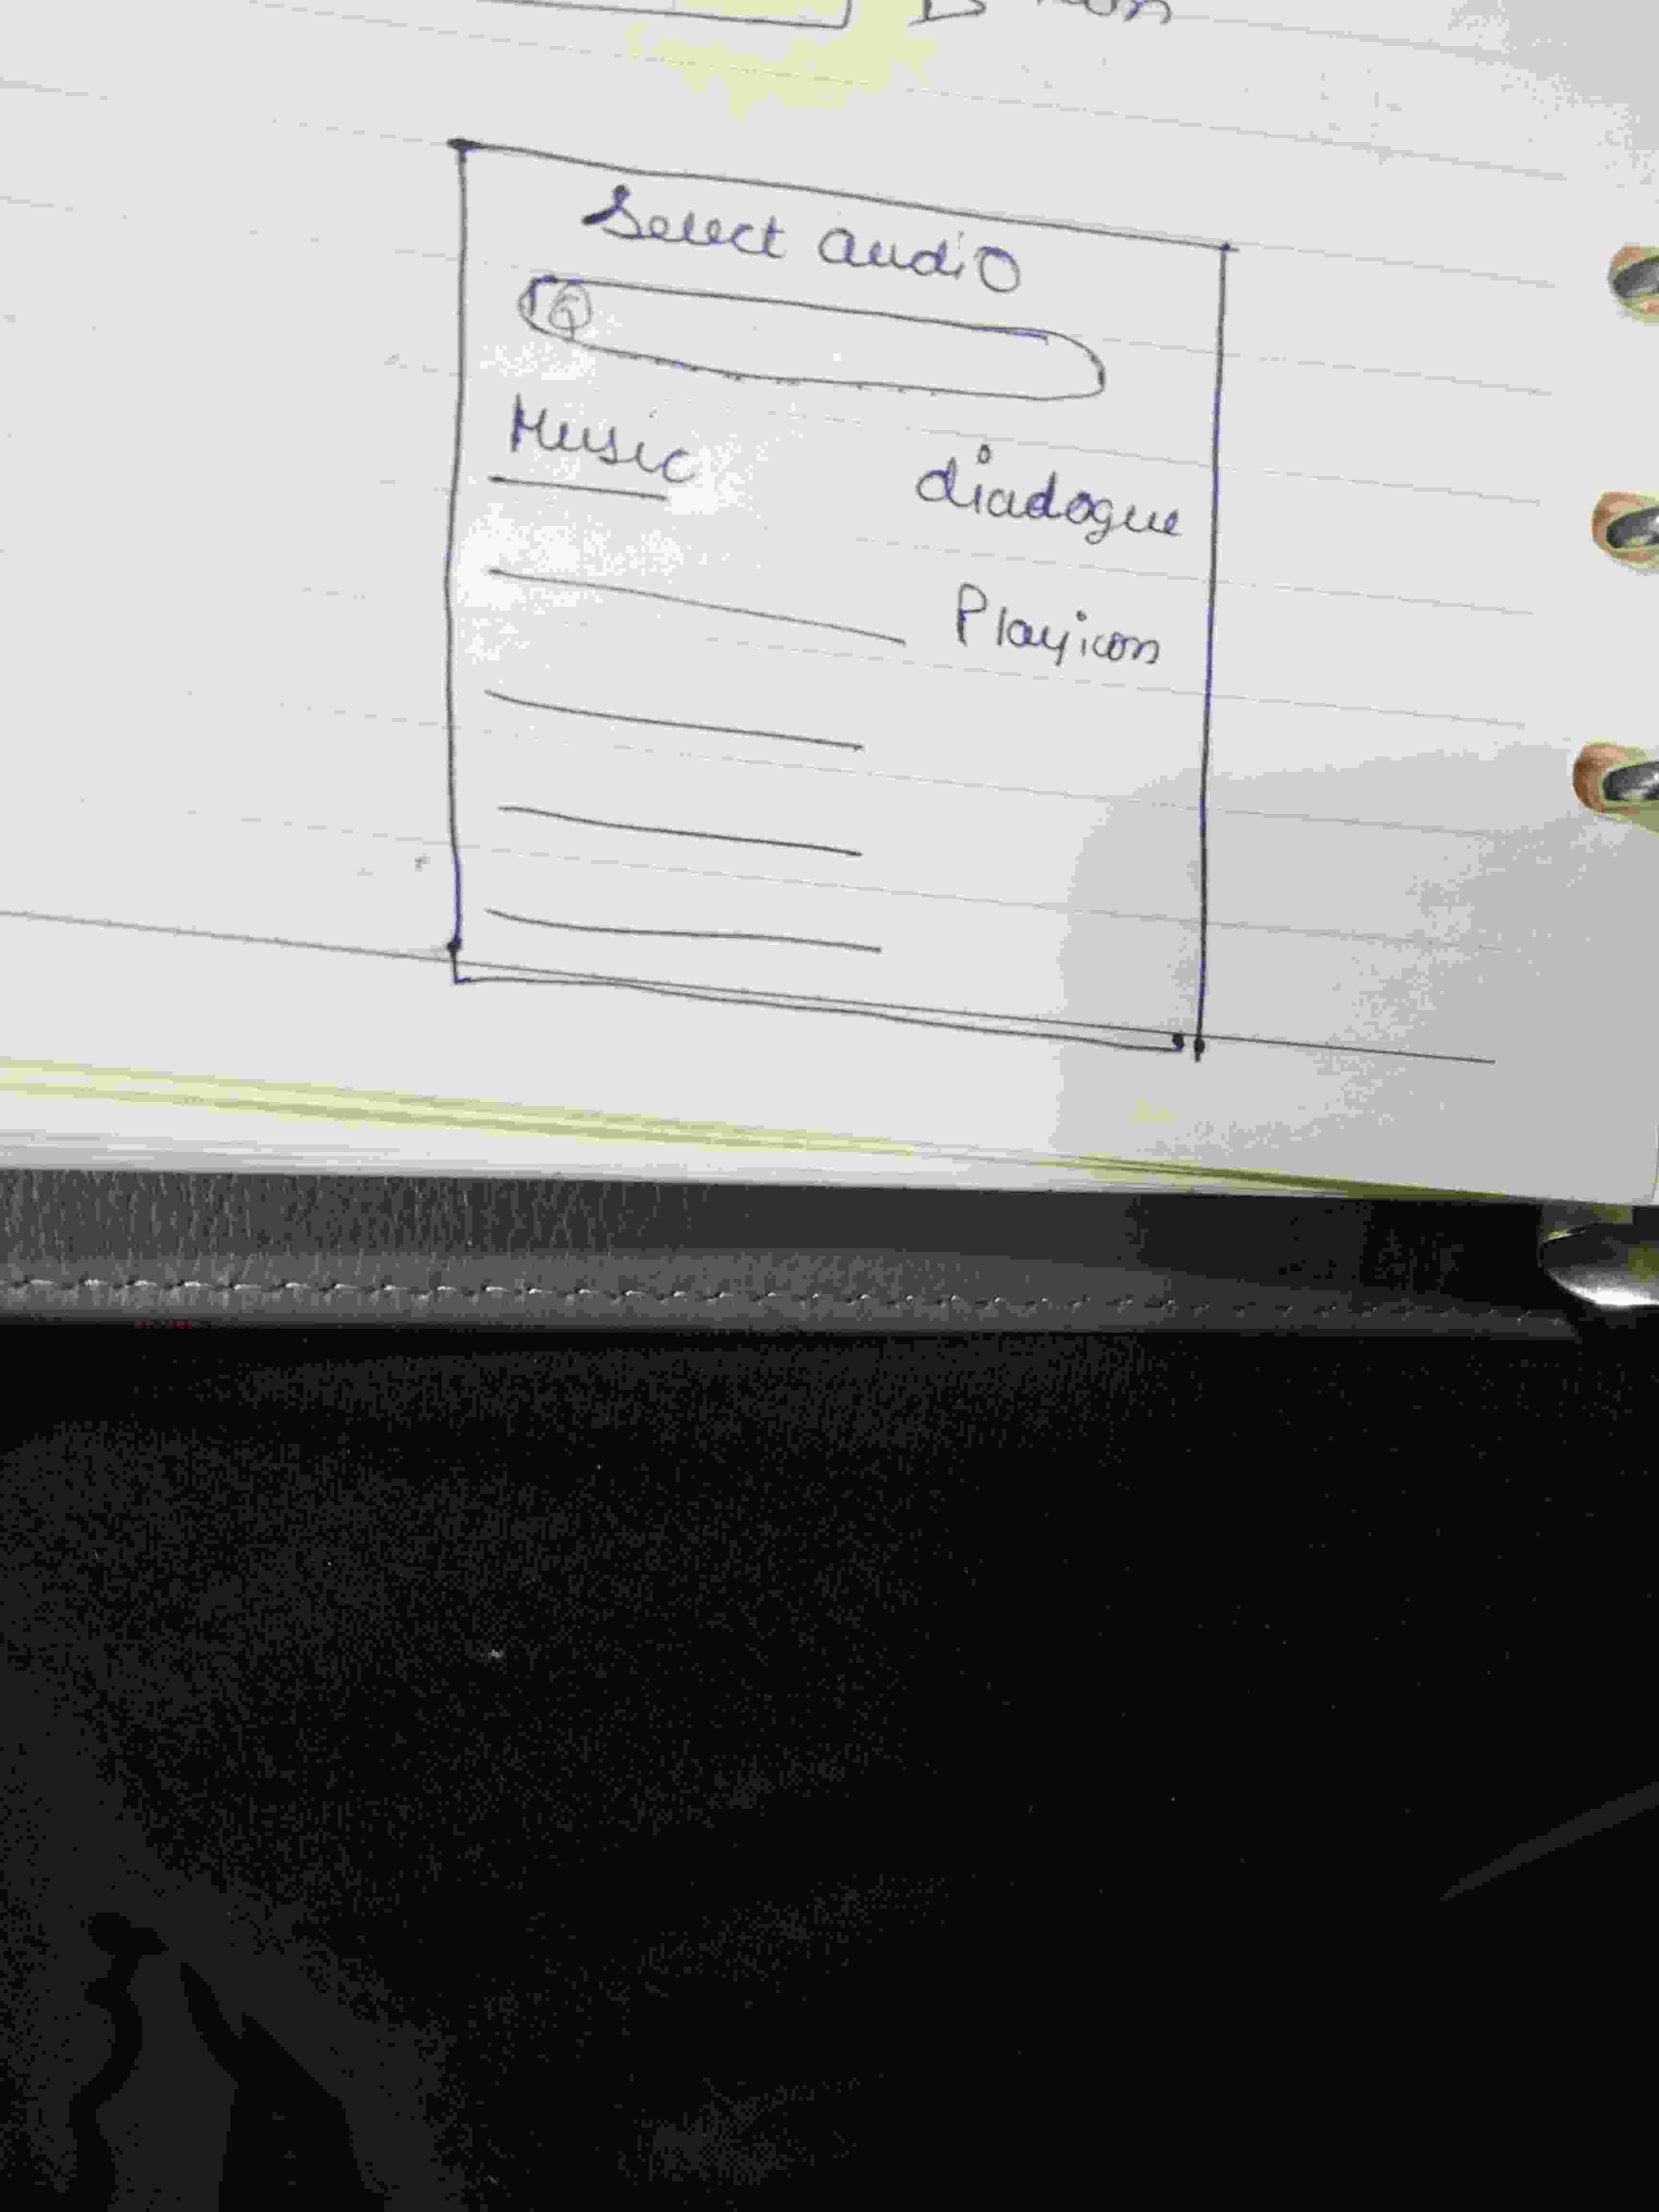 Select audio
Music diadogue
Playicon